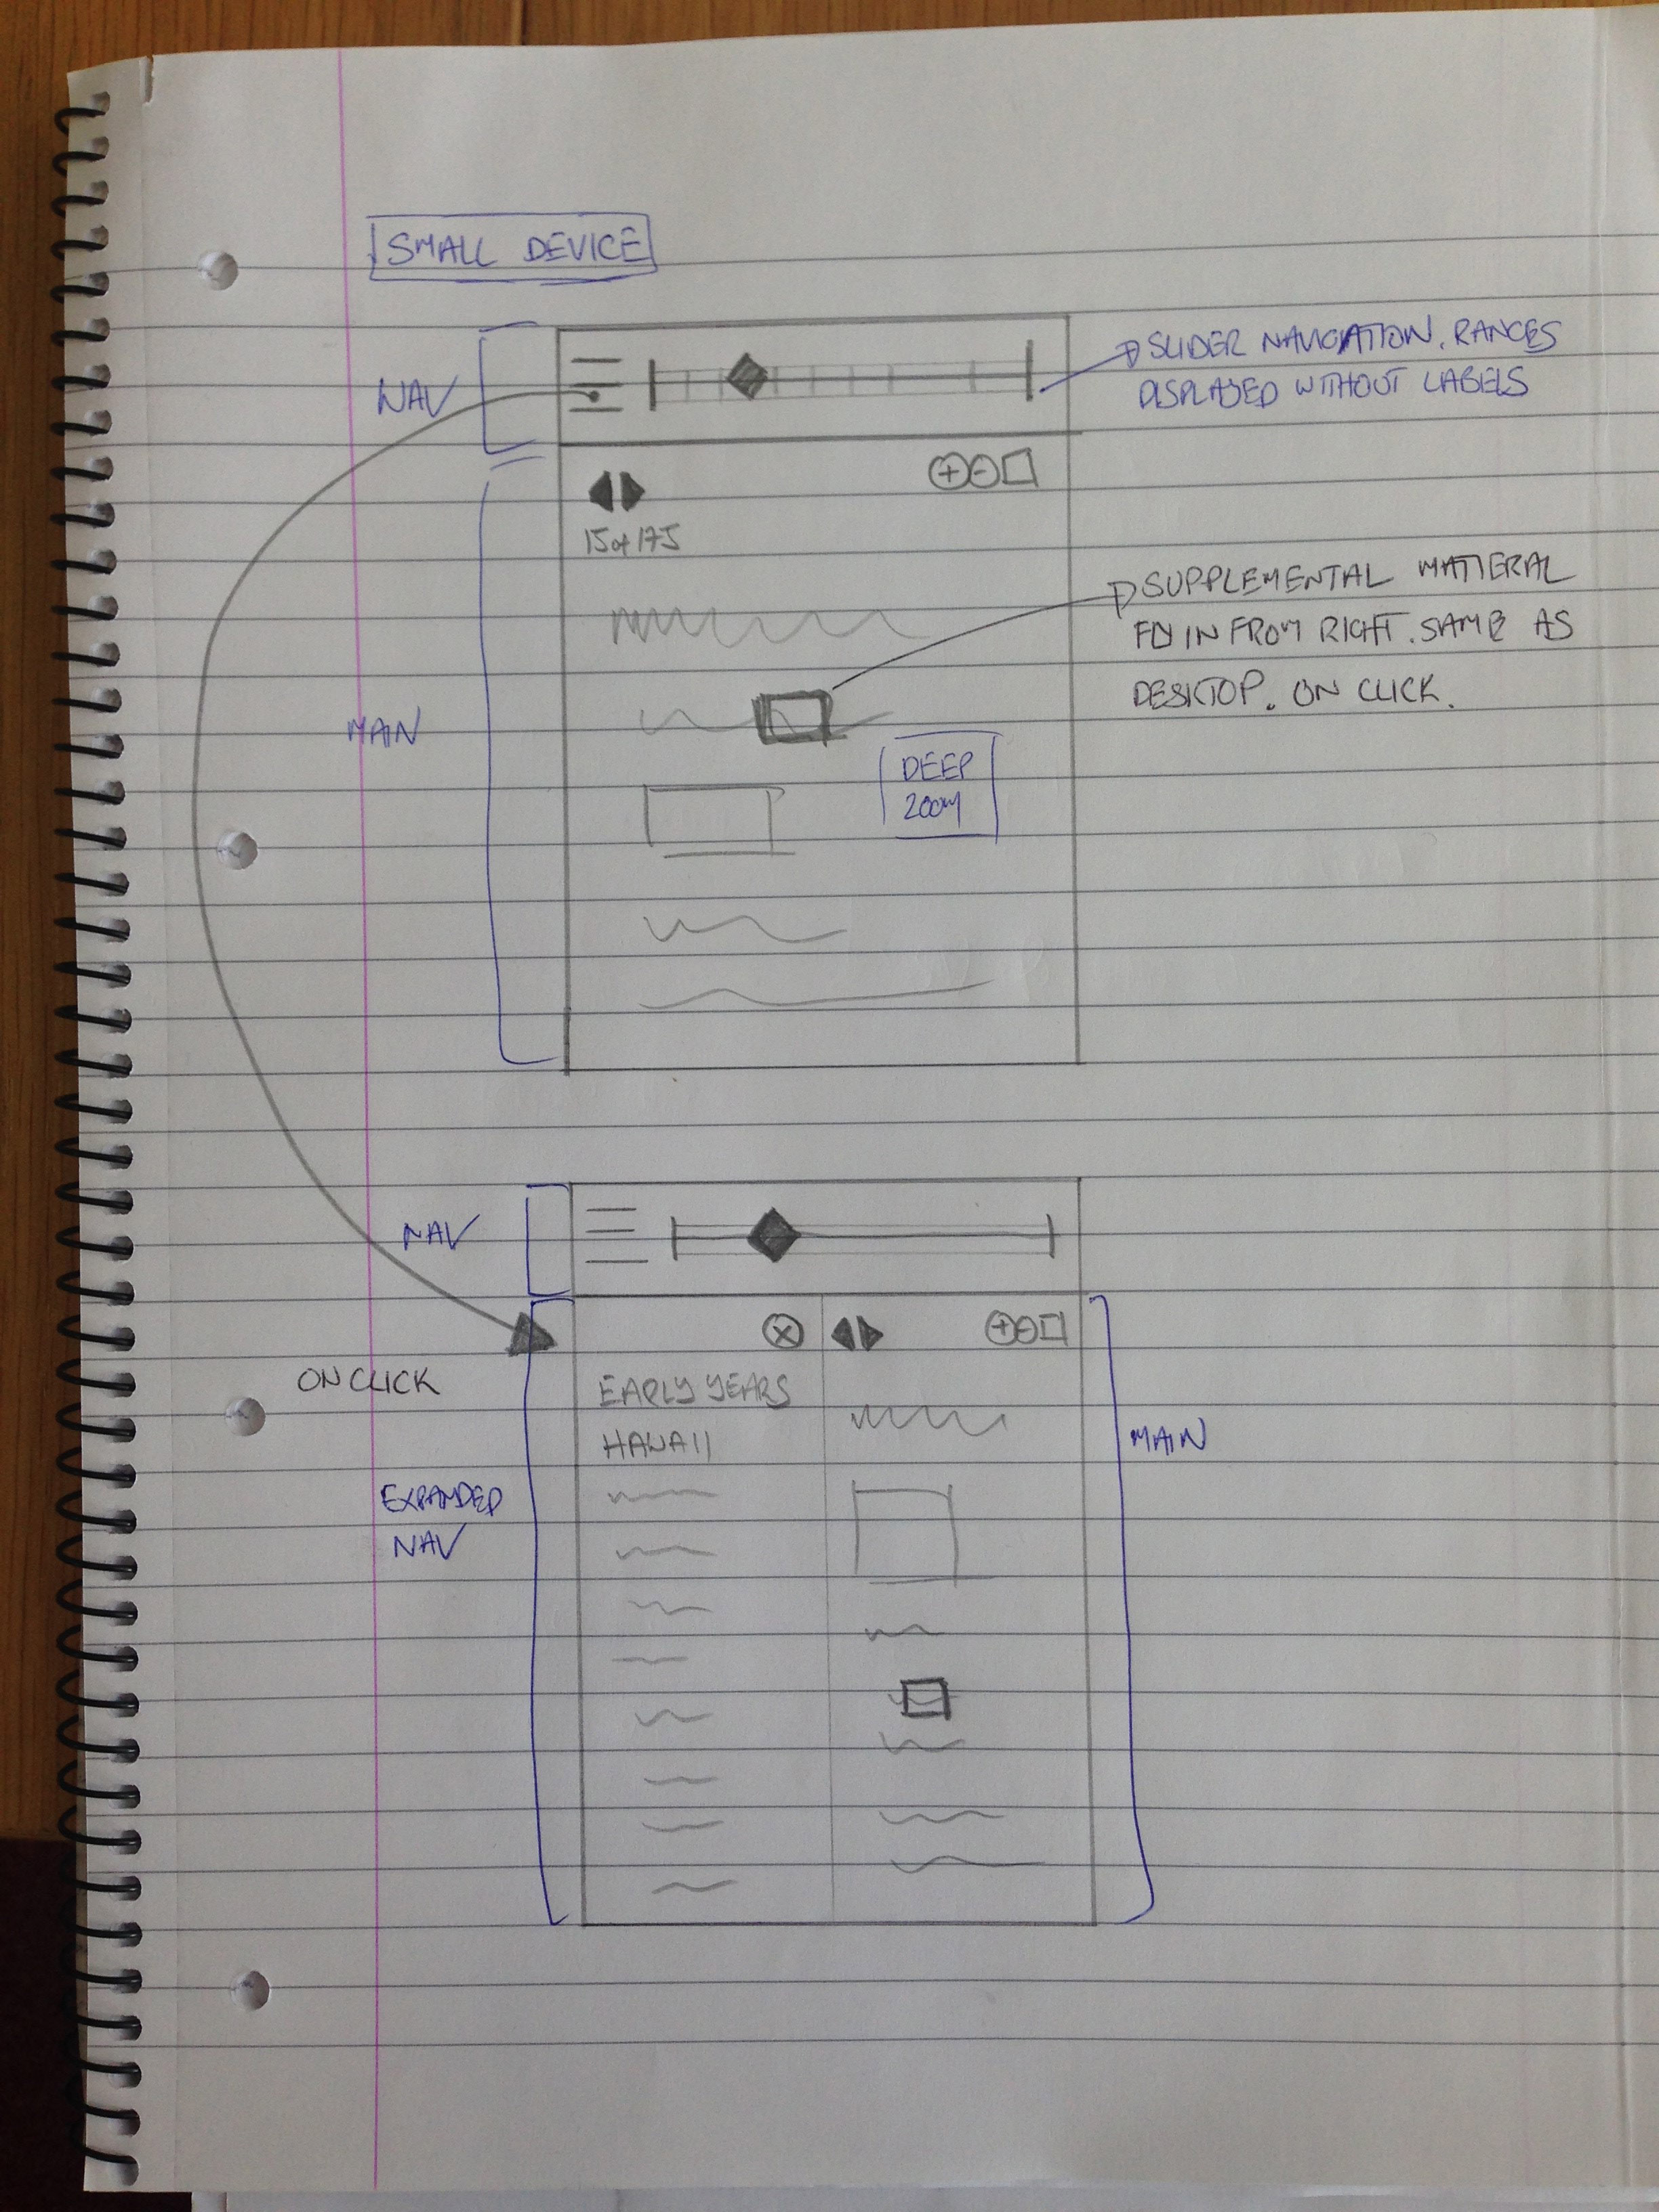 SMALL DEVICE
NAV
SLIDER NAVIGATION. RANGES
DISPLAYED WITHOUT LABELS
+ -
15 of 175
SUPPLEMENTAL MATIERAL
FLY IN FROM RIGHT. SAME AS
DESKTOP. ON CLICK.
MAIN
DEEP
ZOOM
NAV
X
+ -
ON CLICK
EARLY YEARS
HAWAII
MAIN
EXPANDED
NAV